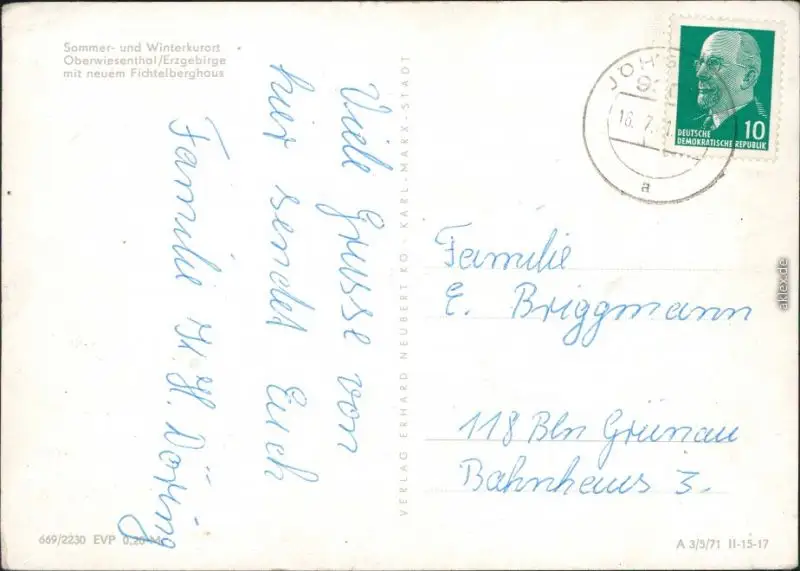 Sommer- und Winterkurort
Oberwiesenthal/Erzgebirge
mit neuem Fichtelberghaus
Viele Grüsse von
hier sendet Euch
Familie H. Döring
VERLAG ERHARD NEUBERT KG · KARL-MARX-STADT
JÖH
16. 7.
a
DEUTSCHE
DEMOKRATISCHE REPUBLIK
10
Familie
E. Briggmann
118 Bln Grünau
Bahnhaus 3.
669/2230 EVP 0,20 M
A 3/5/71 II-15-17
aklex.de